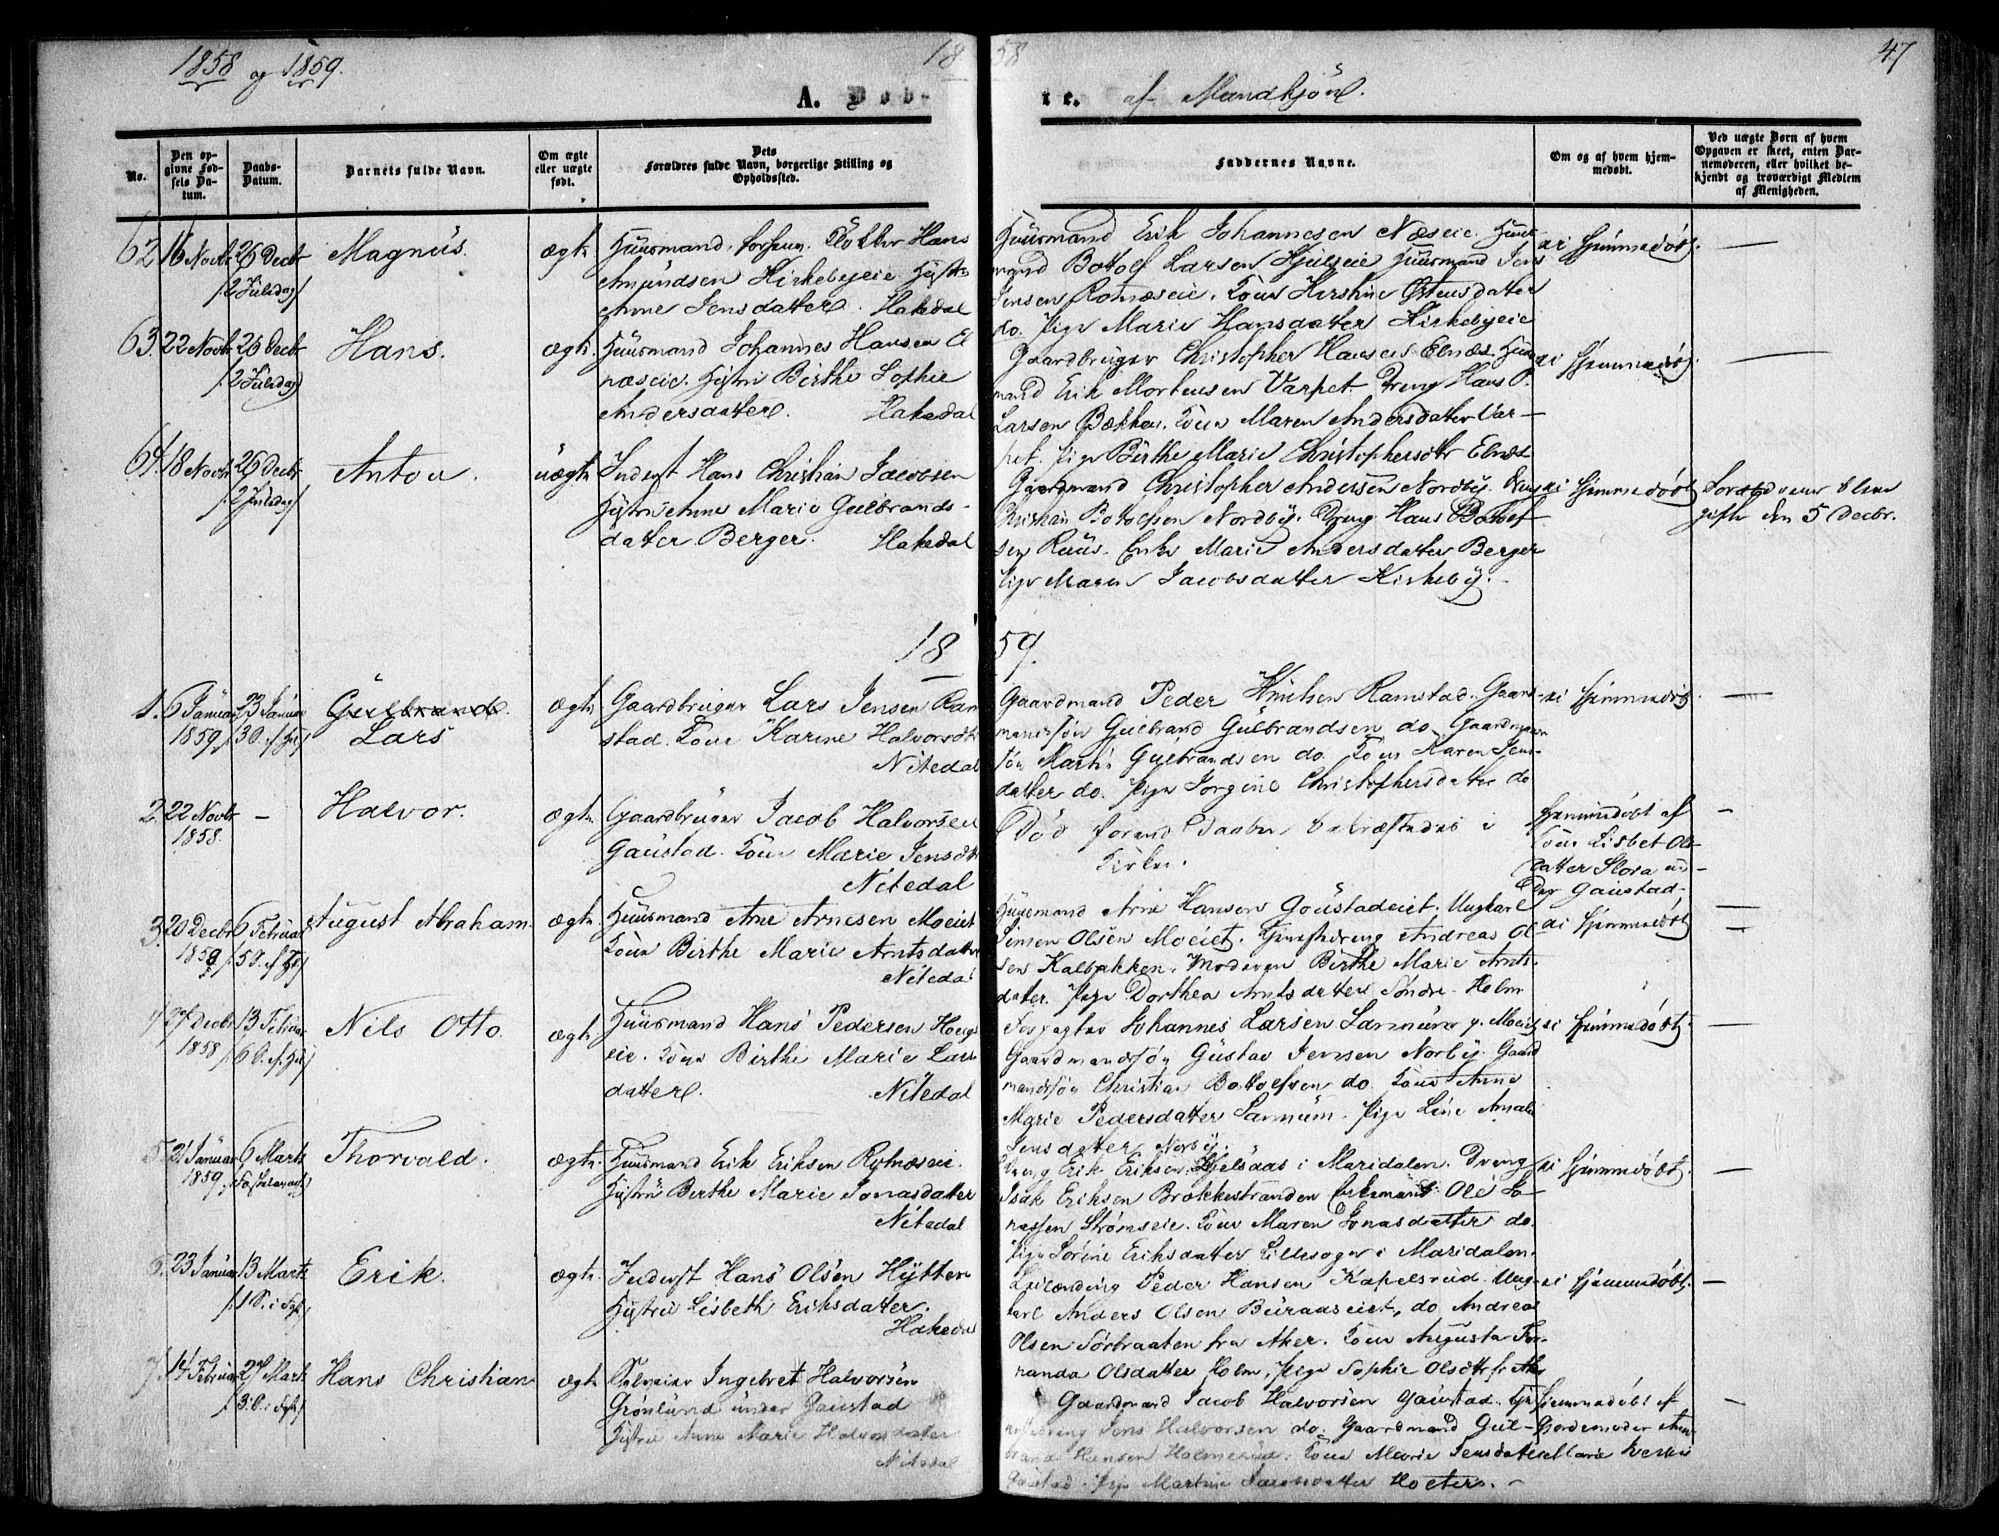 1858 og 1859.
1858
47
A. Døbte. af Mandkjön.
No.
Den opgivne Fødsels Datum.
Daabs-Datum.
Barnets fulde Navn.
Om ægte eller uægte født.
Dets Forældres fulde Navn, borgerlige Stilling og Opholdssted.
Faddernes Navne.
Om og af hvem hjemmedøbt.
Ved uægte Børn af hvem Opgaven er skeet, enten Barnemoderen, eller hvilket bekjendt og troværdigt Medlem af Menigheden.
62 16 Novbr 26 Decbr /2 Juledag/
Magnus.
ægte
Huusmand, Hans
Amundsen Kirkebyeie. Hustru
Anne Jensdatter. Hakedal
Huusmand Erik Johannesen Næseie. Huus-
mand Bottolf Larsen Hjulseie Huusmand Jens
Jensen Rotnæseie. Kone Kirstine Ostensdatter
do. Pige Marie Hansdatter Kirkebyeie
ei hjemmedøbt. —
63. 22 Novbr 26 Decbr /2 Juledag/
Hans.
ægte.
Huusmand Johannes Hansen El
næseie. Hustru Birthe Sophie
Andersdatter. Hakedal
Gaardbruger Christopher Hansen Elnæs. Huus
mand Erik Mortensen Varpet. Dreng Hans P.
Larsen Bækken. Kone Maren Andersdatter Var-
pet. Pige Birthe Marie Christophersdtr Elnæs
ei hjemmedøbt. —
64. 18 Novbr 26 Decbr /2 Juledag/
Anton.
uægte
Inderst Hans Christian Jacobsen
Hustru Anne Marie Gulbrands-
datter Berger. Hakedal
Gaardmand Christopher Andersen Nordby.
Christian Bottolfsen Nordby. Dreng Hans Bottolf
sen Ruus. Enke Marie Andersdatter Berger
Pige Maren Jacobsdatter Kirkeby.
ei hjemmedøbt
Forældrene bleve
gifte den 5 Decbr.
1859.
1. 6 Januar 1859 23 Januar /3 S. e. H. 3 K./
Gulbrand.
Lars
ægte
Gaardbruger Lars Jensen Ram
stad. Kone Karine Halvorsdtr
Nitedal
Gaardmand Peder Knutsen Ramstad. Gaard-
mandssøn Gulbrand Gulbrandsen do. Gaardmand
søn Martin Gulbrandsen do. Kone Karen Jens-
datter do. Pige Jørgine Christophersdatter do
ei hjemmedøbt —
2. 22 Novbr 1858. —
Halvor.
ægte
Gaardbruger Jacob Halvorsen
Gaustad. Kone Marie Jensdtr
Nitedal
Død forend Daaben bekræftedes i
Kirken.
hjemmedøbt af
Kone Lisbet Ols-
datter Flora un-
der Gaustad. —
3. 20 Decbr 1858 6 Februar
August Abraham.
ægte
Huusmand Arne Arnesen Moeiet
Kone Birthe Marie Arntsdatter
Nitedal
Huusmand Arne Hansen Goustadeiet. Ungkarl
Simen Olsen Moeiet. Tjenestedreng Andreas Ol
sen Kalbakken. Moderen Birthe Marie Arnts-
datter. Pige Dorthea Arntsdatter Søndre Holm
ei hjemmedøbt —
4. 27 Decbr 1858 13 Februar
Nils Otto.
ægte
Huusmand Hans Pedersen Haug
eie. Kone Birthe Marie Lars
datter. Nitedal
Forpagter Johannes Larsen Sannum p. Moeiet
Gaardmandssøn Gustav Jensen Norby. Gaard
mandssøn Christian Bottolfsen do. Kone Anne
Marie Pedersdatter Sannum. Pige Line Amalie
Jensdatter Norby.
ei hjemmedøbt. —
5. 2 Januar 1859 6 Marts /Fastelavns/
Thorvald.
ægte.
Huusmand Erik Eriksen Rotnæseie.
Hustru Birthe Marie Jonasdatter
Nitedal
Dreng Erik Eriksen Kjelsaas i Maridalen. Dreng
Isak Eriksen Brækkestranden Enkemand Ole Jo-
nassen Strømseie. Kone Maren Jonasdatter do.
Pige Sørine Eriksdatter Lilleseger i Maridalen.
ei hjemmedøbt. —
6. 23 Januar 13 Marts /1 S. i Faste/
Erik.
ægte.
Inderst Hans Olsen Hytten
Hustru Lisbeth Eriksdatter.
Hakedal
Leilænding Peder Hansen Kapelsrud. Ung-
karl Anders Olsen Buraaseiet, do Andreas
Olsen Sørbraaten fra Aker. Kone Augusta Fer-
nanda Olsdatter Holm, Pige Sophie Olsdtr fr Aker
ei hjemmedøbt. —
7. 14 Februar 27 Marts /3 S. i Faste/
Hans Christian
ægte
Selveier Ingebret Halvorsen
Grønlund under Gaustad
Hustru Anne Marie Halvorsdatter
Nitedal
Gaardmand Jacob Halvorsen Gaustad. Tje
nestedreng Jens Halvorsen do. Gaardmand Gul-
brand Hansen Holmerud. Kone Marie Jensdatter
Gaustad. Pige Martine Jacobsdatter Holter. —
hjemmedøbt af
Jordemoder Anne
Maria
—